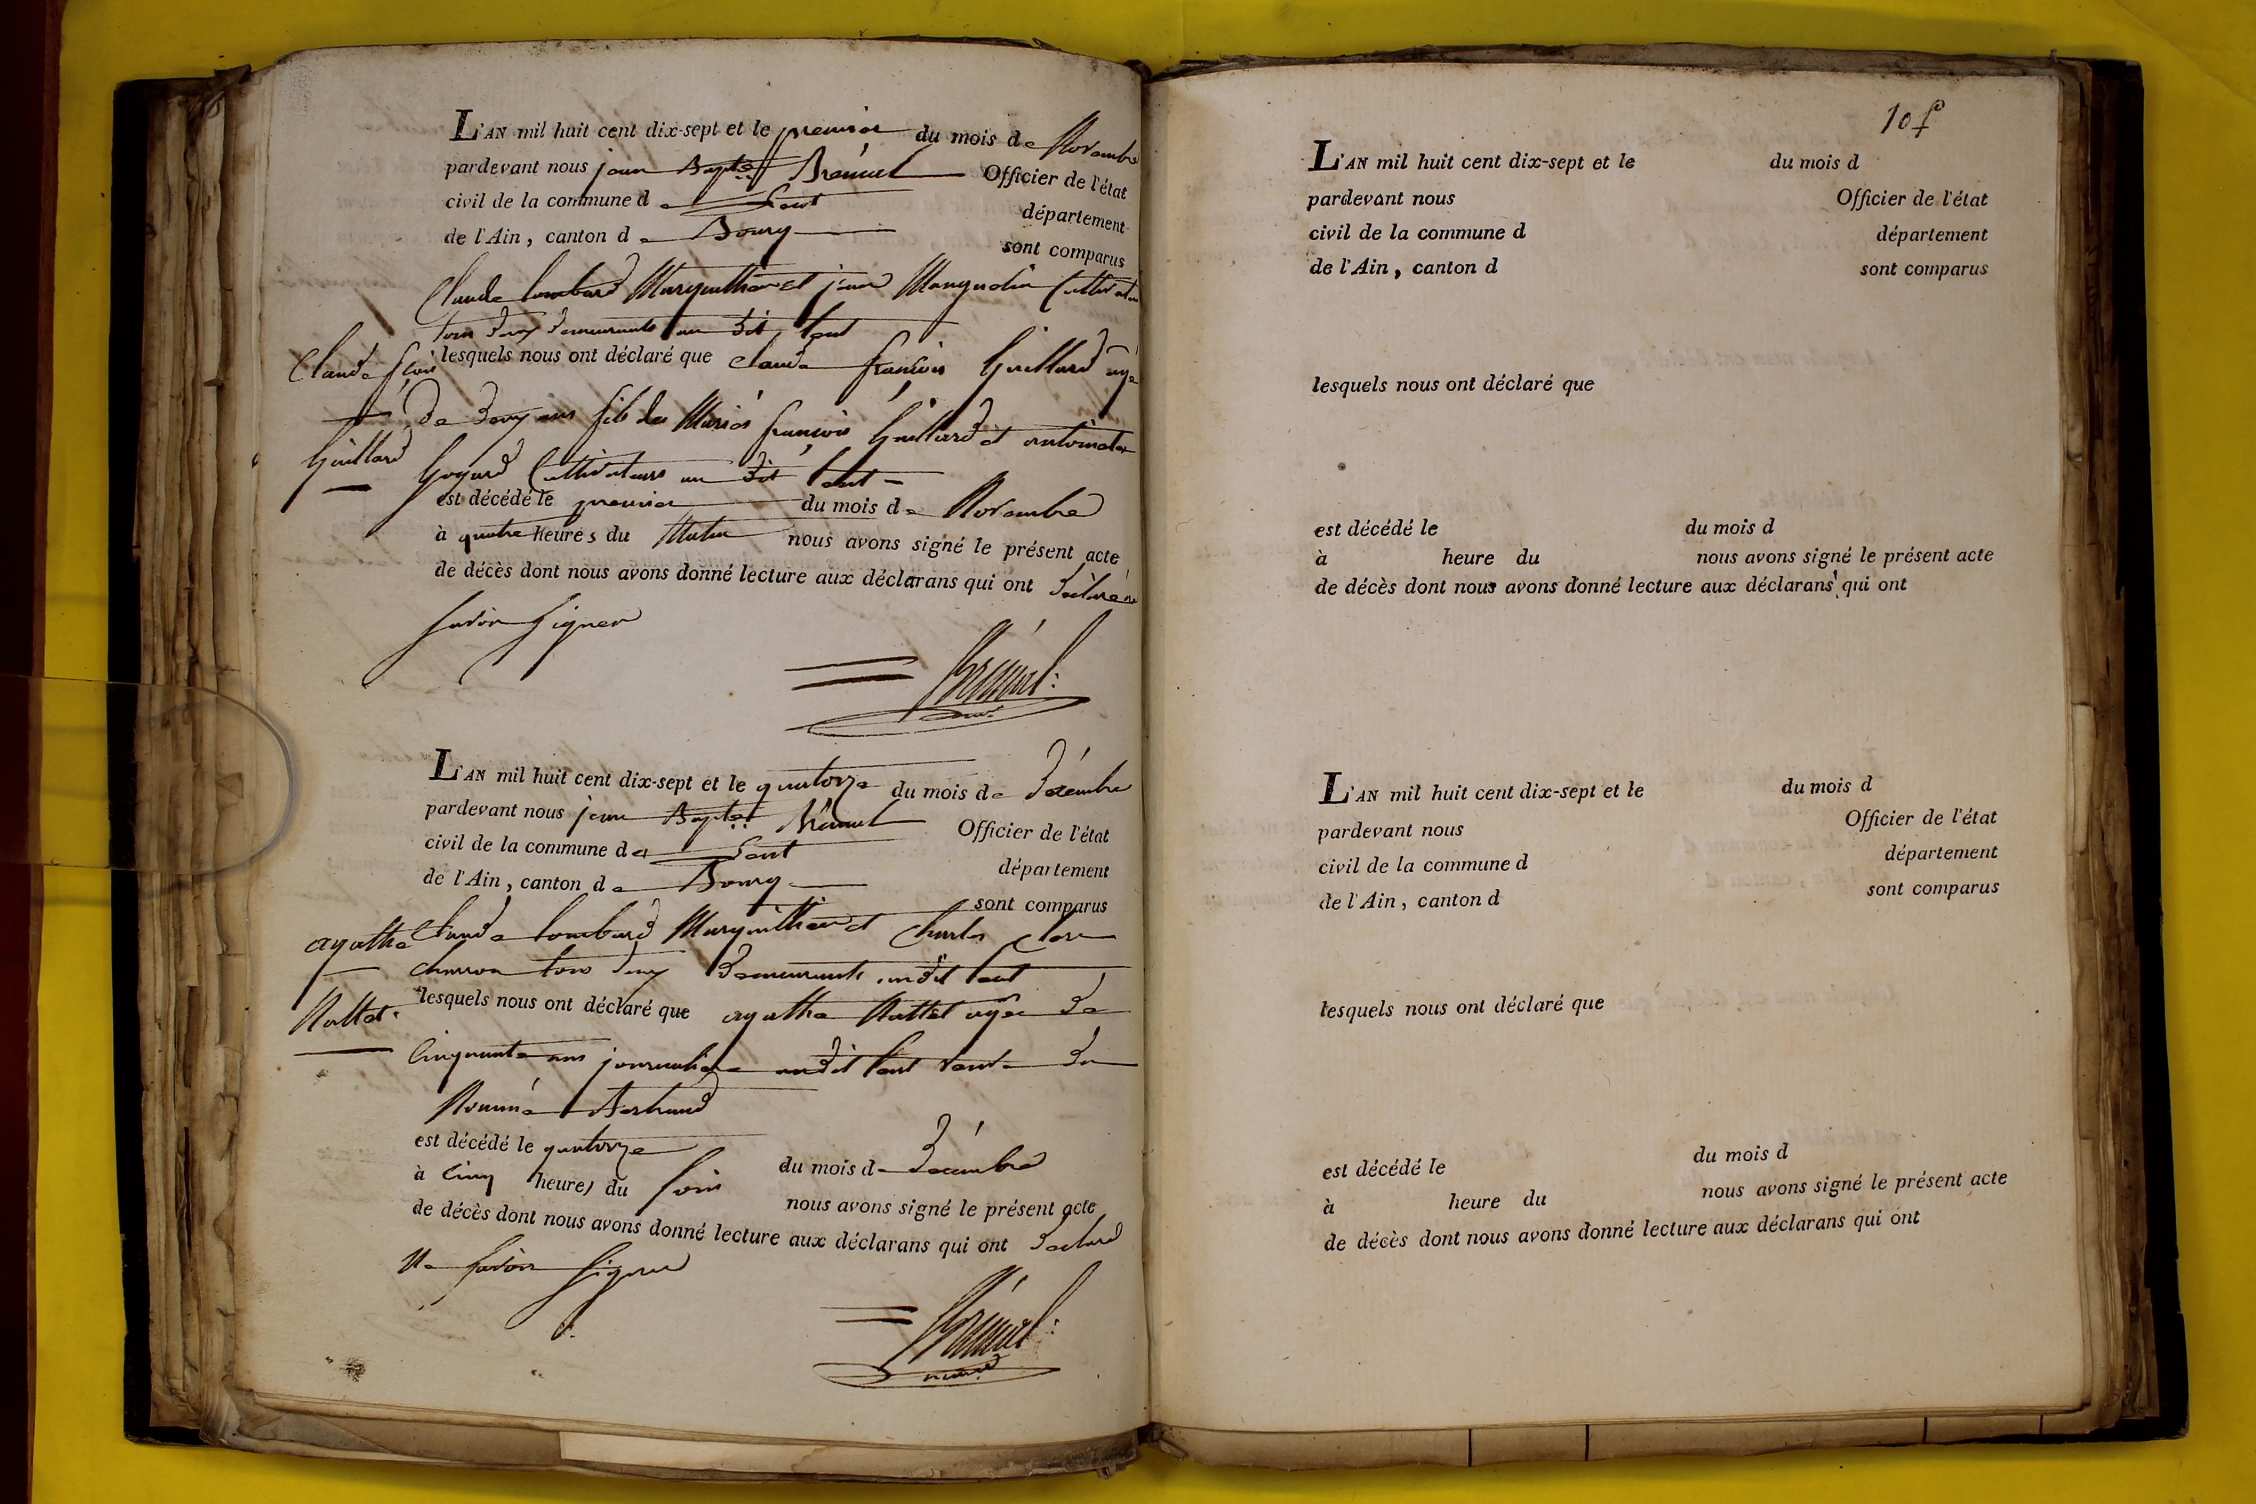 L'AN mil huit cent dix-sept et le premier du mois de Novembre
pardevant nous jean Bapte Brévuel Officier de l'état
civil de la commune de Lent département
de l'Ain, canton de Bourg sont comparus
Claude Lombard Marguillier et jean Manguelin Cultivateur
tous deux demeurants au dit Lent
lesquels nous ont déclaré que Claude françois Guillard agé
Claude fçois
de deux ans fils des Mariés françois Guillard et antoinette
Guillard
Goyard Cultivateurs au dit Lent
est décédé le premier du mois de Novembre
à quatre heures du Matin nous avons signé le présent acte
de décès dont nous avons donné lecture aux déclarans qui ont déclaré ne
savoir signer
L'AN mil huit cent dix-sept et le quatorze du mois de Décembre
pardevant nous jean Bapte Officier de l'état
civil de la commune de Lent département
de l'Ain, canton de Bourg sont comparus
agathe
Claude Lombard Marguillier et Charles
charron tous deux demeurants audit Lent
Nallet
lesquels nous ont déclaré que agathe Nallet agée de
Cinquante ans journalière audit Lent veuve du
Nommé Bertrand
est décédé le quatorze du mois de Décembre
à Cinq heures du soir nous avons signé le présent acte
de décès dont nous avons donné lecture aux déclarans qui ont déclaré
Ne savoir signer
L'AN mil huit cent dix-sept et le du mois d
pardevant nous Officier de l'état
civil de la commune d département
de l'Ain, canton d sont comparus
lesquels nous ont déclaré que
est décédé le du mois d
à heure du nous avons signé le présent acte
de décès dont nous avons donné lecture aux déclarans qui ont
L'AN mil huit cent dix-sept et le du mois d
pardevant nous Officier de l'état
civil de la commune d département
de l'Ain, canton d sont comparus
lesquels nous ont déclaré que
est décédé le du mois d
à heure du nous avons signé le présent acte
de décès dont nous avons donné lecture aux déclarans qui ont